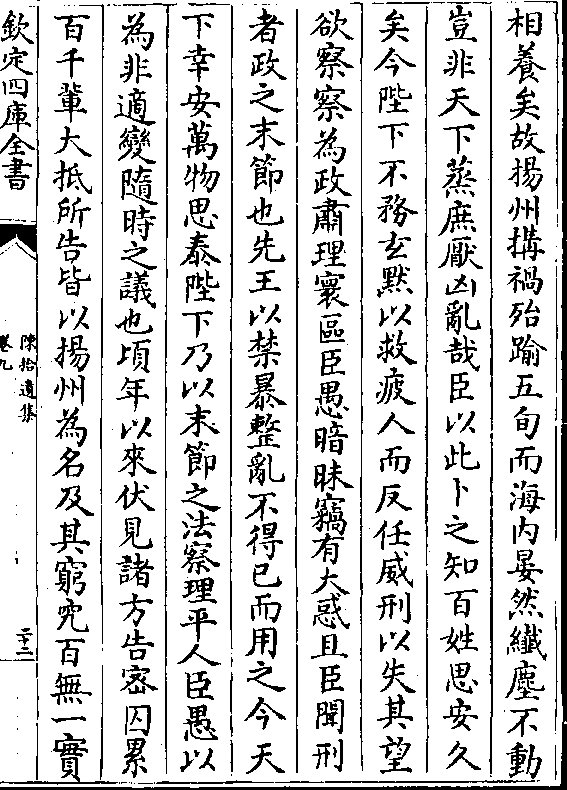 相養矣故揚州搆禍殆踰五旬而海内晏然纎塵不動
豈非天下蒸庶厭凶亂哉臣以此卜之知百姓思安久
矣今陛下不務玄默以救疲人而反任威刑以失其望
欲察察為政肅理寰區臣愚暗昧竊有大惑且臣聞刑
者政之末節也先王以禁暴整亂不得已而用之今天
下幸安萬物思泰陛下乃以末節之法察理平人臣愚以
為非適變隨時之議也頃年以來伏見諸方告宻囚累
百千輩大抵所告皆以揚州為名及其窮究百無一實
欽定四庫全書
陳拾遺集
卷九
二十二